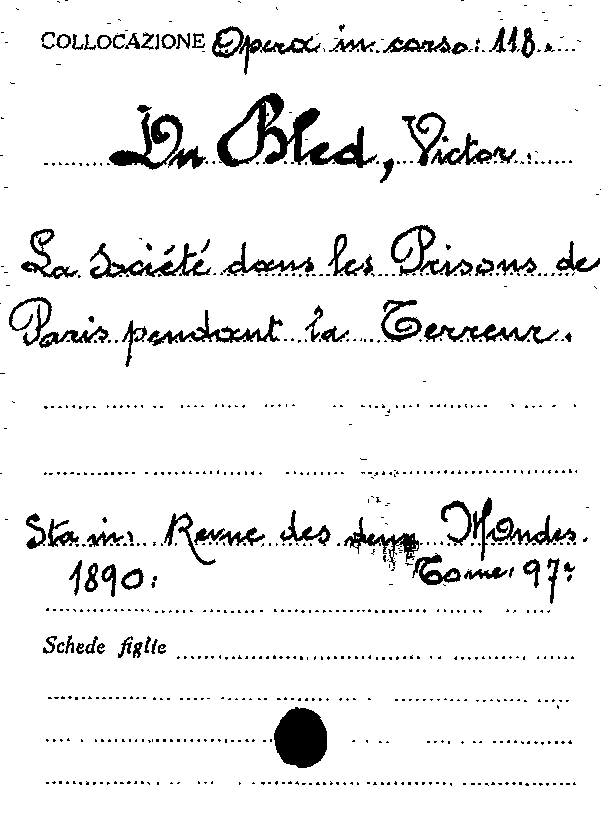 COLLOCAZIONE Opera in corso: 118.
Du Bled, Victor.
La Société dans les Prisons de
Paris pendant la Terreur.
Sta in: Revue des deux Mondes.
1890: Tome: 97º
Schede figlie